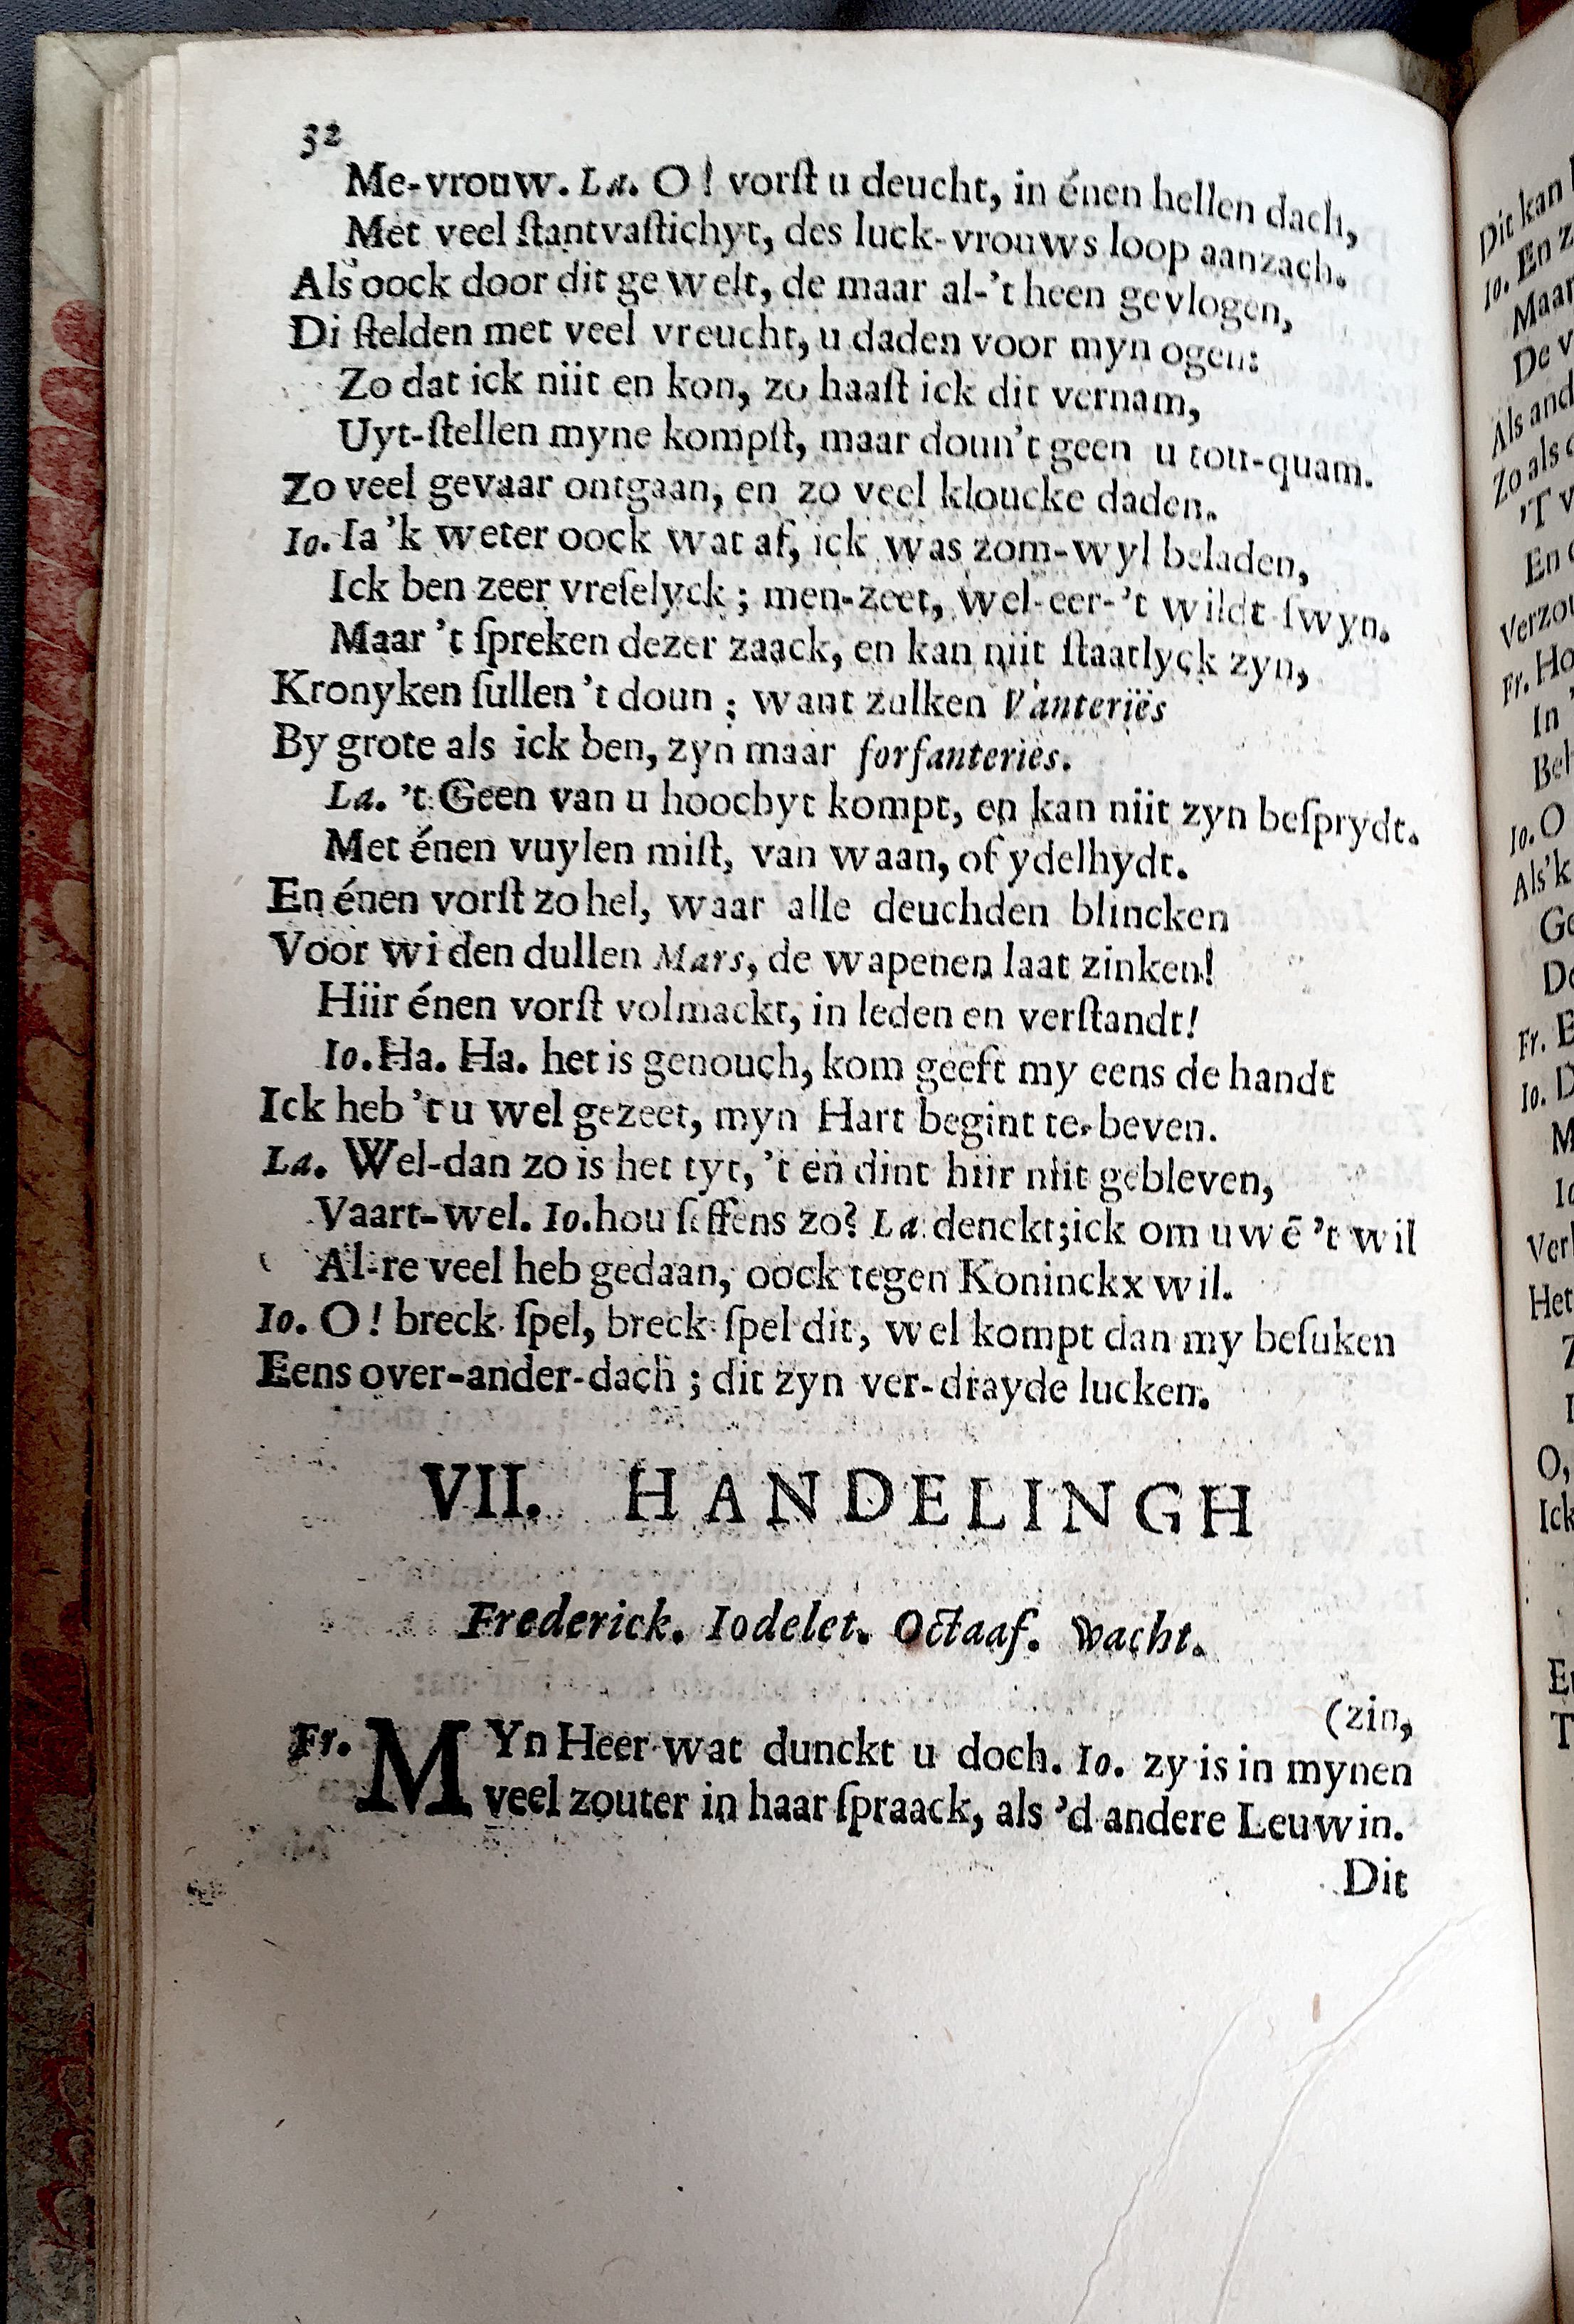 32
Me-vrouw. La. O! vorſt u deucht, in énen hellen dach,
Met veel ſtantvaſtichyt, des luck-vrouws loop aanzach.
Als oock door dit gewelt, de maar al-'t heen gevlogen,
Di ſtelden met veel vreucht, u daden voor myn ogen:
Zo dat ick niit en kon, zo haaſt ick dit vernam,
Uyt-ſtellen myne kompſt, maar doun't geen u tou-quam.
Zo veel gevaar ontgaan, en zo veel kloucke daden.
Io. Ia 'k weter oock wat af, ick was zom-wyl beladen,
Ick ben zeer vreſelyck; men-zeet, wel-eer-'t wildt ſwyn.
Maar 't ſpreken dezer zaack, en kan niit ſtaatlyck zyn,
Kronyken ſullen 't doun; want zulken Vanteriës
By grote als ick ben, zyn maar forfanteriës.
La. 't Geen van u hoochyt kompt, en kan niit zyn beſprydt.
Met énen vuylen miſt, van waan, of ydelhydt.
En énen vorſt zo hel, waar alle deuchden blincken
Voor wi den dullen Mars, de wapenen laat zinken!
Hiir énen vorſt volmackt, in leden en verſtandt!
Io. Ha. Ha. het is genouch, kom geeft my eens de handt
Ick heb 't u wel gezeet, myn Hart begint te beven.
La. Wel-dan zo is het tyt, 't en dint hiir niit gebleven,
Vaart-wel. Io. hou ſeffens zo? La denckt; ick om uwē 't wil
Al-re veel heb gedaan, oock tegen Koninckx wil.
Io. O! breck ſpel, breck ſpel dit, wel kompt dan my beſuken
Eens over-ander-dach; dit zyn ver-drayde lucken.
VII. HANDELINGH
Frederick. Iodelet. Octaaf. Wacht.
(zin,
Fr. MYn Heer wat dunckt u doch. Io. zy is in mynen
veel zouter in haar ſpraack, als 'd andere Leuwin.
Dit
Dit kan
Io. En
Maar
De
Als
Zo als
'T
En
Fr.
In
Io. O
Als 'k
Fr.
Io.
Het
O,
Ick